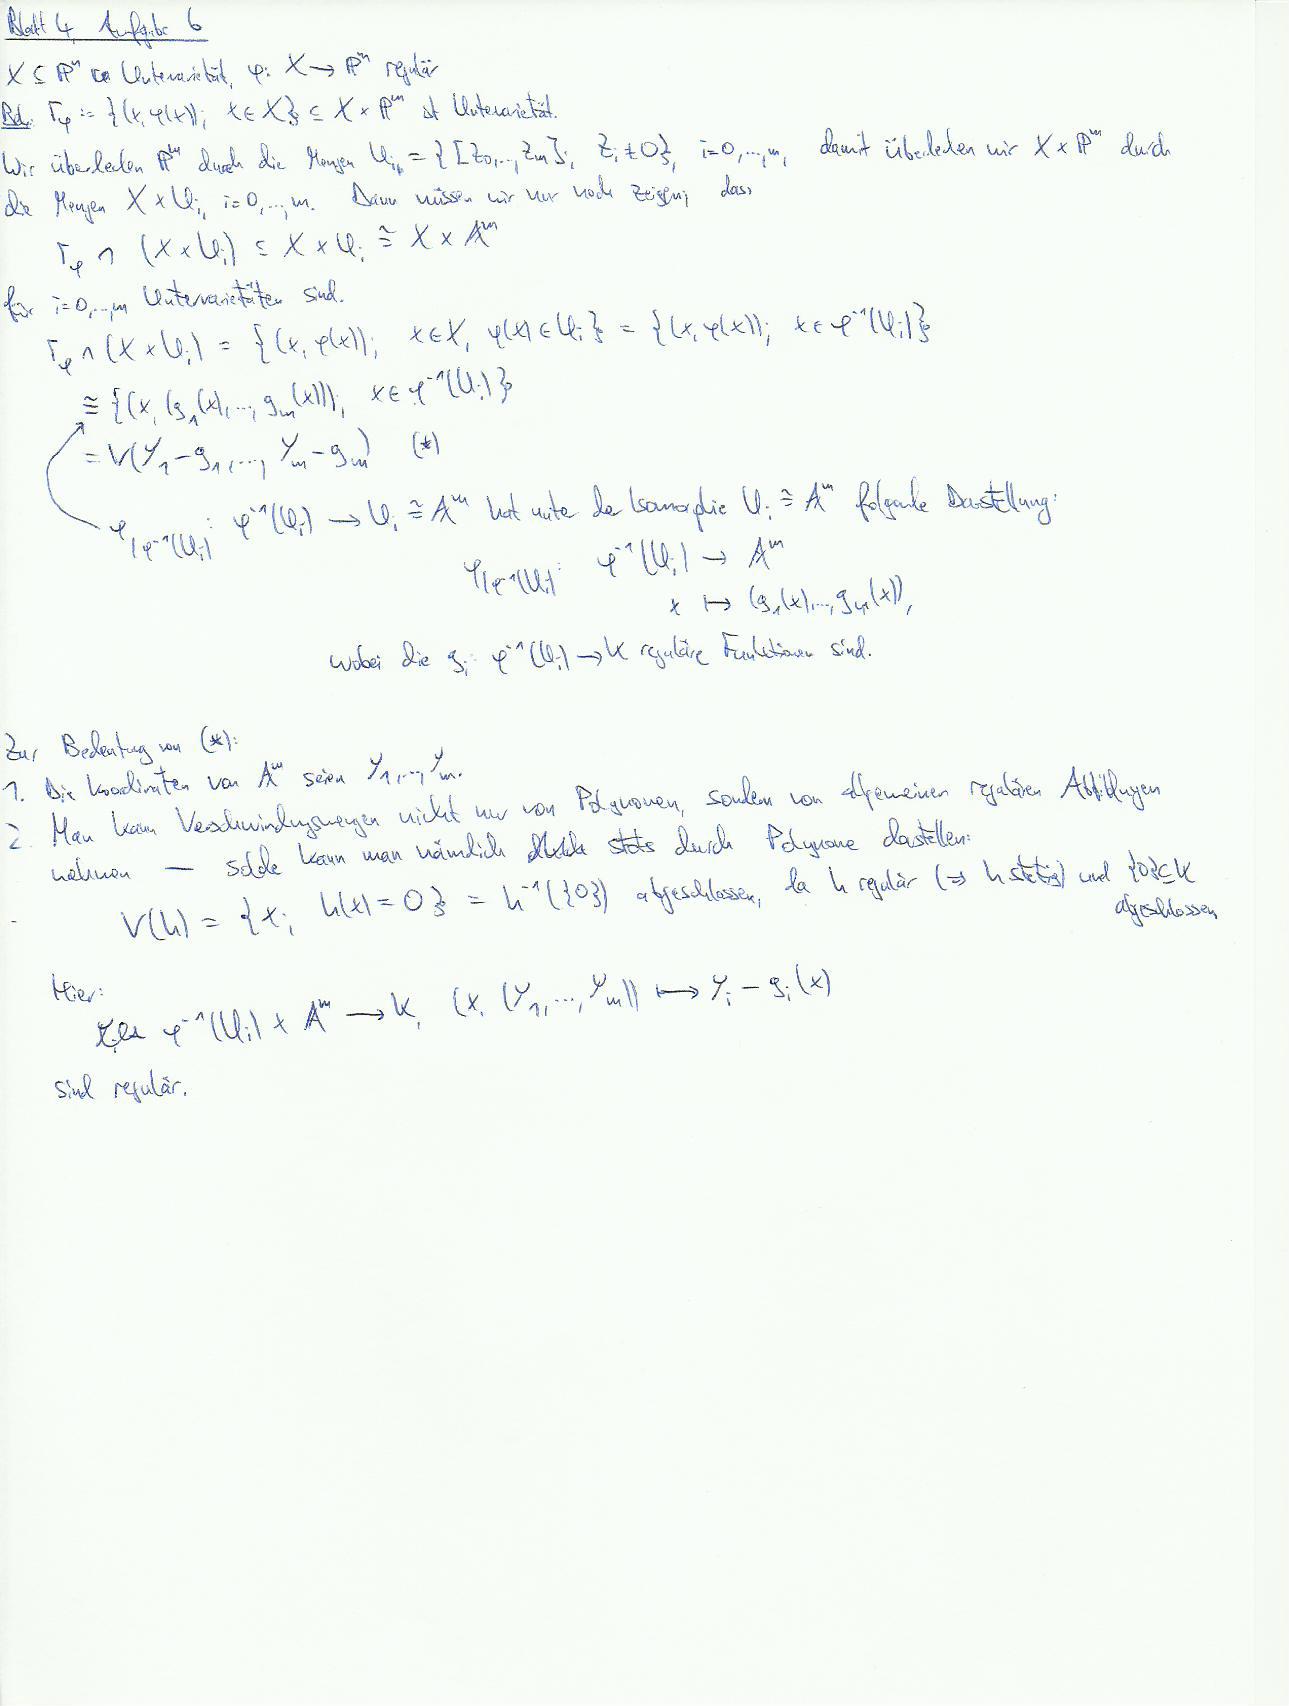 Blatt 4, Aufgabe 6
X ⊆ ℙⁿ Untervarietät, φ: X → ℙᵐ regulär
Γ_φ := {(x, φ(x)); x ∈ X} ⊆ X × ℙᵐ ist Untervarietät.
Wir überdecken ℙᵐ durch die Mengen U_i = {[Z₀,...,Z_m]; Z_i ≠ 0}, i=0,...,m, damit überdecken wir X × ℙᵐ durch
die Mengen X × U_i, i=0,...,m. Dann müssen wir nur noch zeigen, dass
Γ_φ ∩ (X × U_i) ⊆ X × U_i ≅ X × 𝔸ᵐ
für i=0,...,m Untervarietäten sind.
Γ_φ ∩ (X × U_i) = {(x, φ(x)); x ∈ X, φ(x) ∈ U_i} = {(x, φ(x)); x ∈ φ⁻¹(U_i)}
≅ {(x, (g₁(x),...,g_m(x))); x ∈ φ⁻¹(U_i)}
= V(Y₁-g₁,..., Y_m-g_m) (*)
φ|φ⁻¹(U_i): φ⁻¹(U_i) → U_i ≅ 𝔸ᵐ hat unter der Isomorphie U_i ≅ 𝔸ᵐ folgende Darstellung:
φ|φ⁻¹(U_i): φ⁻¹(U_i) → 𝔸ᵐ
x ↦ (g₁(x),...,g_m(x)),
wobei die g_i: φ⁻¹(U_i) → K reguläre Funktionen sind.
Zur Bedeutung von (*):
1. Die Koordinaten von 𝔸ᵐ seien Y₁,...,Y_m.
2. Man kann Verschwindungsmengen nicht nur von Polynomen, sondern von allgemeinen regulären Abbildungen
nehmen — solche kann man nämlich stets durch Polynome darstellen:
V(h) = {x; h(x) = 0} = h⁻¹({0}) abgeschlossen, da h regulär (⇒ h stetig) und {0} ⊆ K
abgeschlossen
Hier:
φ⁻¹(U_i) × 𝔸ᵐ → K, (x, (Y₁,...,Y_m)) ↦ Y_i - g_i(x)
sind regulär.